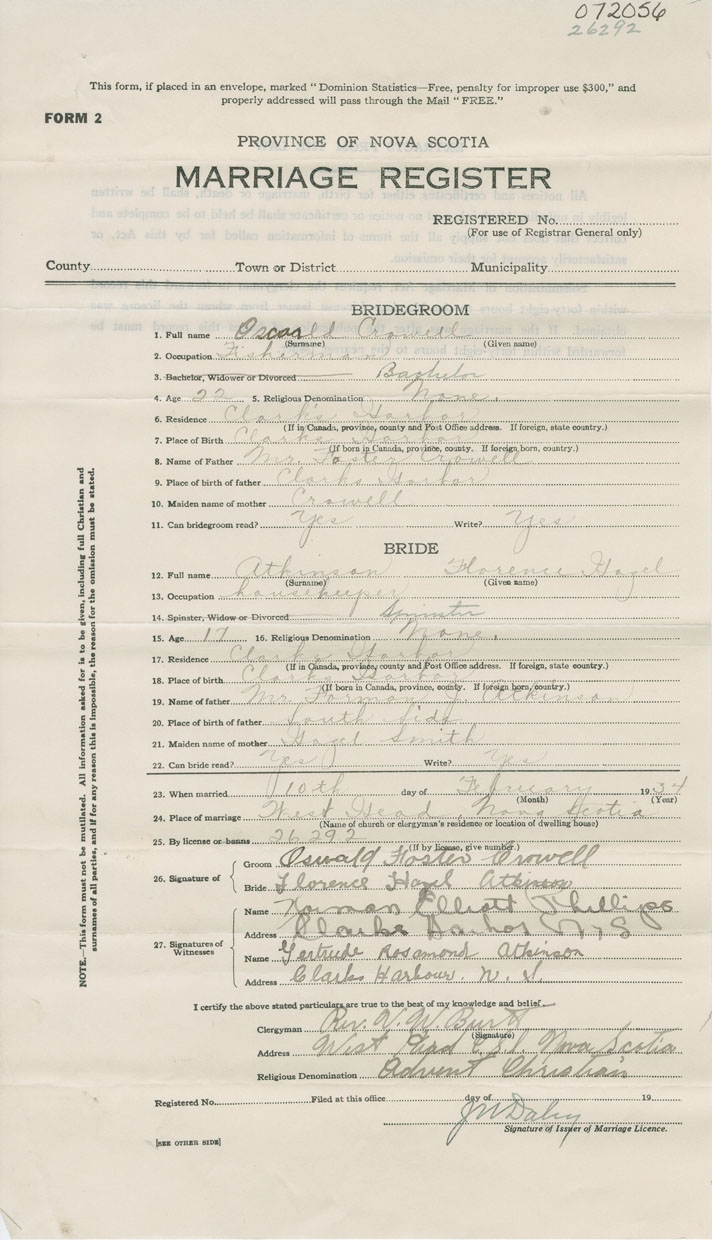 072056
26292
This form, if placed in an envelope, marked "Dominion Statistics—Free, penalty for improper use $300," and
properly addressed will pass through the Mail "FREE."
FORM 2
PROVINCE OF NOVA SCOTIA
MARRIAGE REGISTER
REGISTERED No.
(For use of Registrar General only)
County Town or District Municipality
BRIDEGROOM
1. Full name Oswald Crowell
(Surname) (Given name)
2. Occupation Fisherman
3. Bachelor, Widower or Divorced Bachelor
4. Age 22 5. Religious Denomination None.
6. Residence Clark's Harbor
(If in Canada, province, county and Post Office address. If foreign, state country.)
7. Place of Birth Clarks Harbor
(If born in Canada, province, county. If foreign born, country.)
8. Name of Father Mr. Foster Crowell
9. Place of birth of father Clarks Harbor
10. Maiden name of mother Crowell
11. Can bridegroom read? Yes Write? Yes
BRIDE
12. Full name Atkinson Florence Hazel
(Surname) (Given name)
13. Occupation housekeeper
14. Spinster, Widow or Divorced Spinster
15. Age 17 16. Religious Denomination None.
17. Residence Clarks Harbor
(If in Canada, province, county and Post Office address. If foreign, state country.)
18. Place of birth Clarks Harbor
(If born in Canada, province, county. If foreign born, country.)
19. Name of father Mr. Forman J. Atkinson
20. Place of birth of father South Side
21. Maiden name of mother Hazel Smith
22. Can bride read? Yes Write? Yes
23. When married 10th day of February 1934
(Month) (Year)
24. Place of marriage West Head, Nova Scotia
(Name of church or clergyman's residence or location of dwelling house)
25. By license or banns 26292
(If by license, give number.)
26. Signature of Groom Oswald Foster Crowell
Bride Florence Hazel Atkinson
27. Signatures of Witnesses
Name Norman Elliott Phillips
Address Clarks Harbor N,S
Name Gertrude Rosamond Atkinson
Address Clarks Harbour. N. S.
I certify the above stated particulars are true to the best of my knowledge and belief.
Clergyman Rev. W. W. Burt
(Signature)
Address West Head C.S.I. Nova Scotia
Religious Denomination Advent Christian
Registered No. Filed at this office day of 19
Signature of Issuer of Marriage Licence.
[SEE OTHER SIDE]
NOTE.—This form must not be mutilated. All information asked for is to be given, including full Christian and
surnames of all parties, and if for any reason this is impossible, the reason for the omission must be stated.